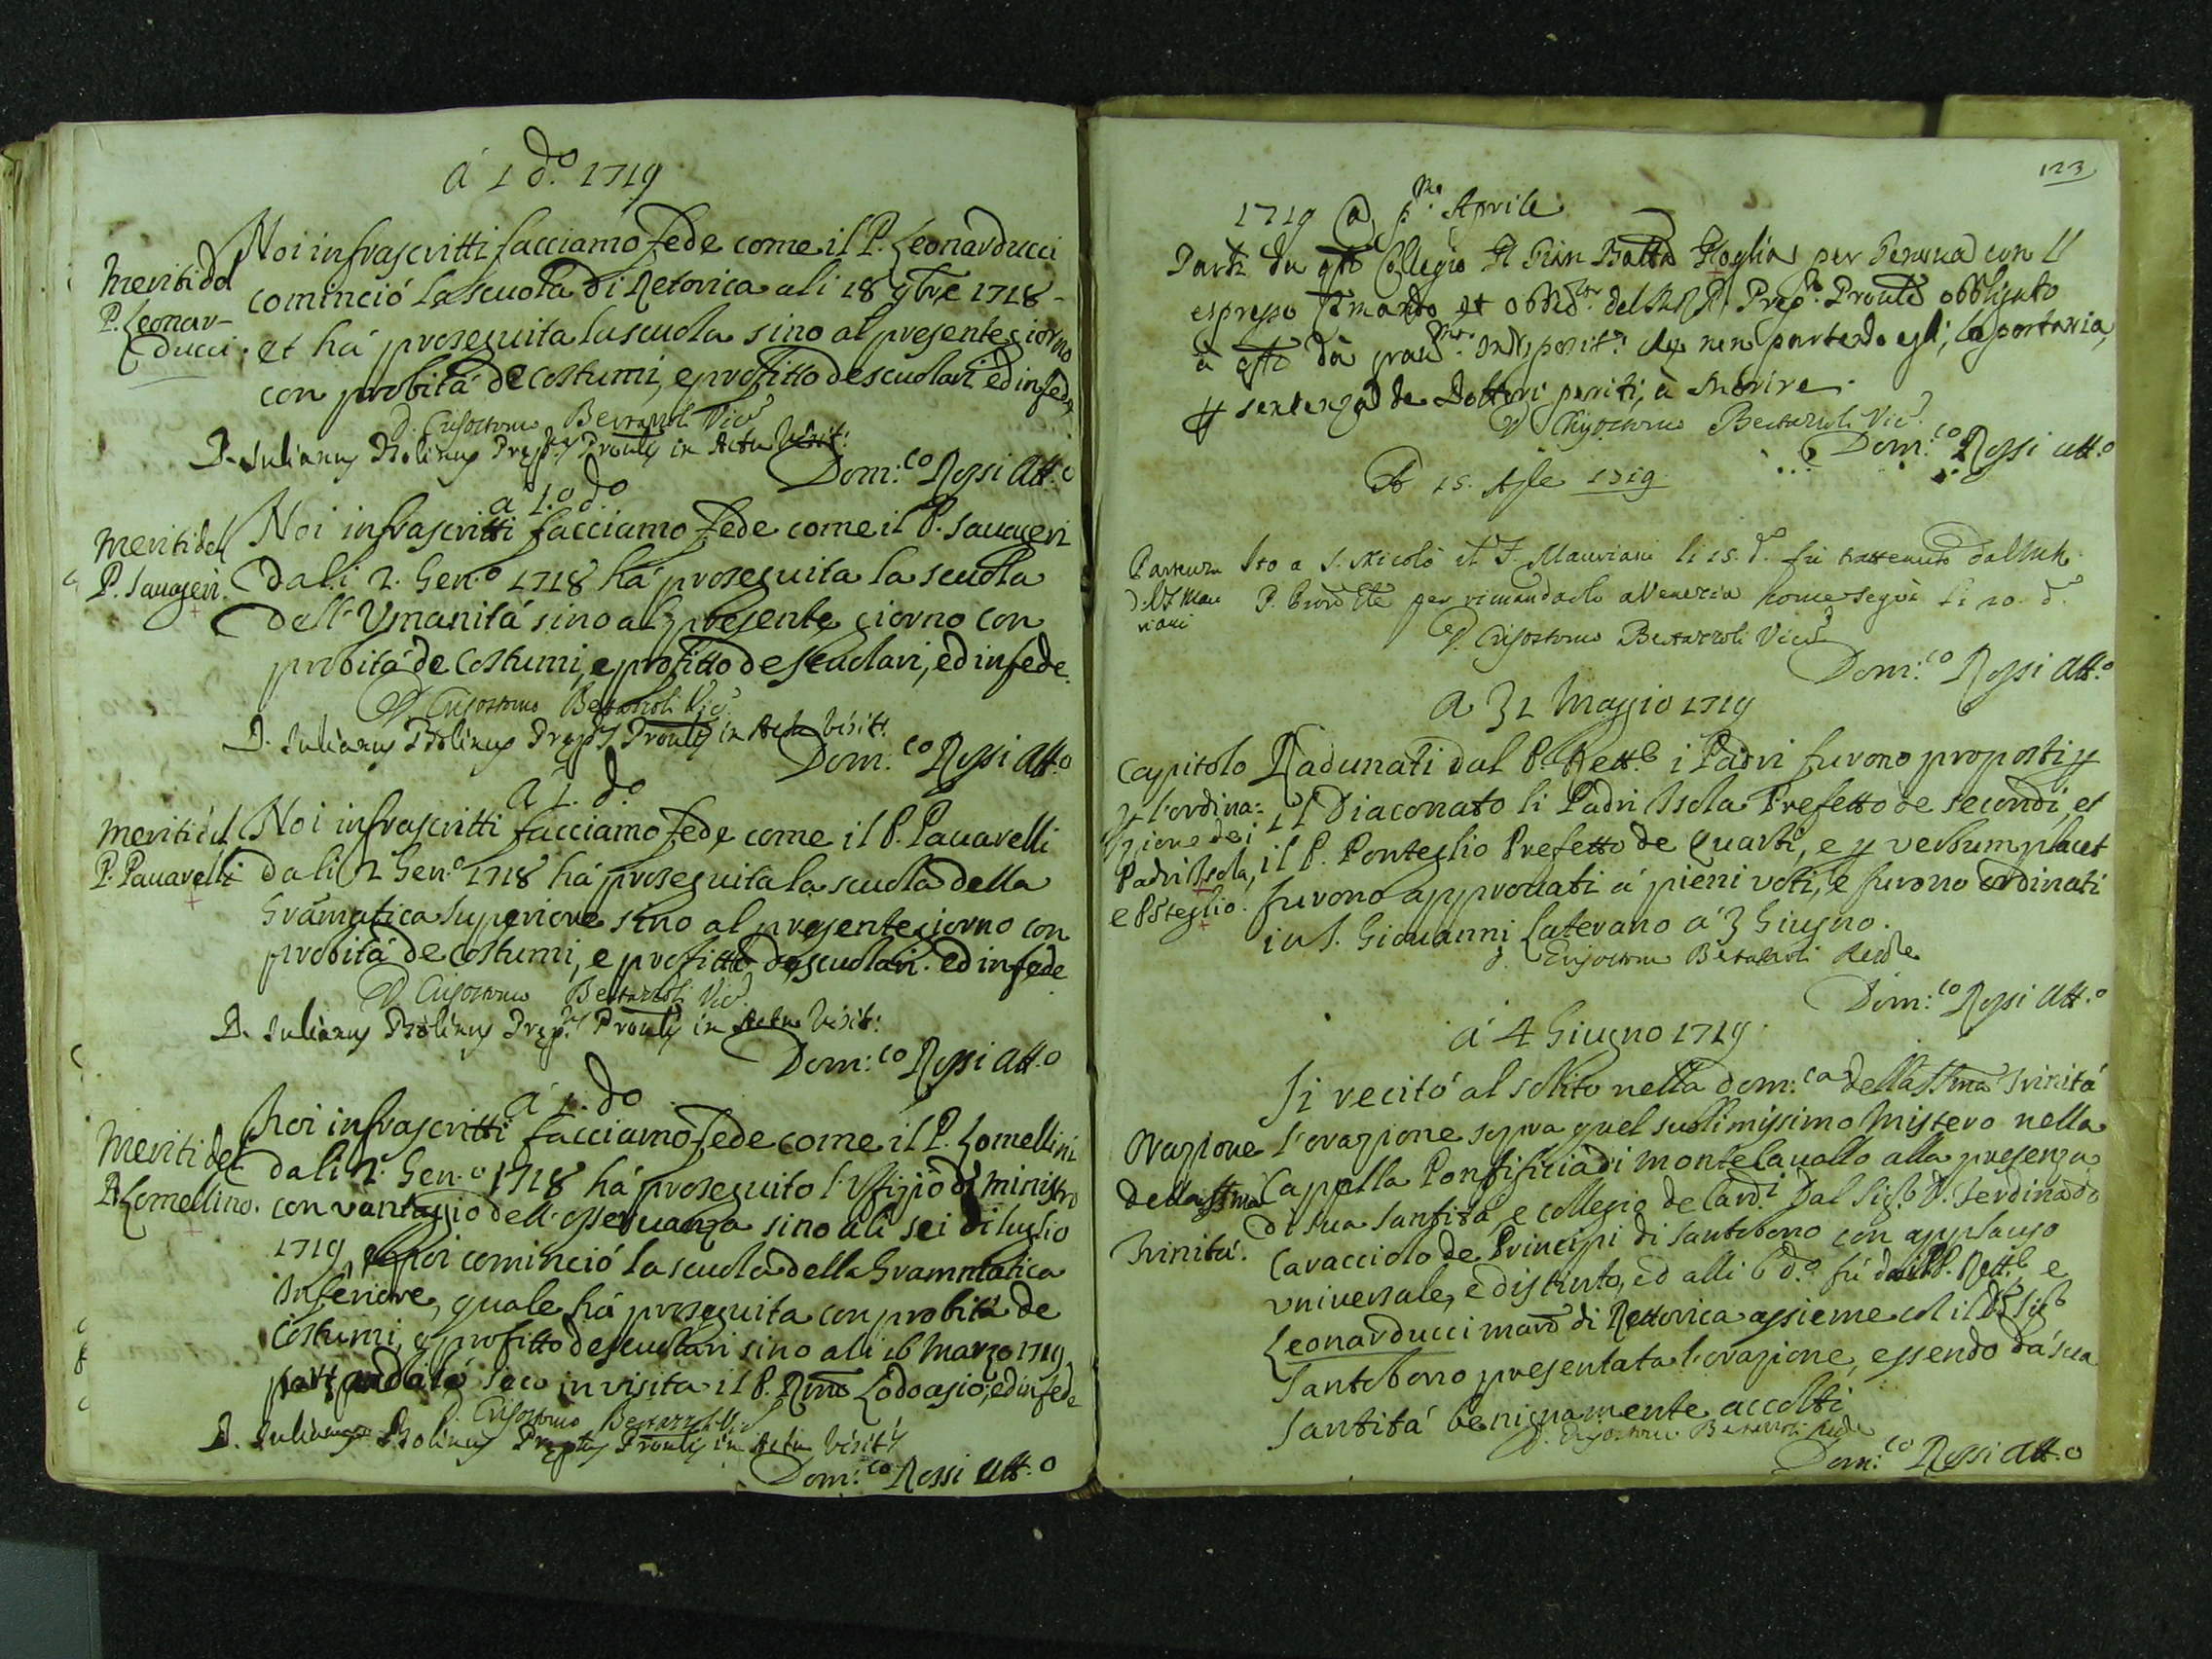 á 1 d.o 1719
Noi infrascritti facciamo fede come il P. Leonarducci
Meriti del
P. Leonar-
ducci.
cominció la scuola di Retorica a li 18 9bre 1718 -
et há proseguita la scuola sino al presente giorno
con probitá de costumi, e profitto de scuolari, ed in fede
D. Crisostomo Bertazzoli Vic.
D. Iulianus Bolinus Prep.tus Prou.lis in Actu Visit:
Dom:co Rossi Att.o
á 1.o d.o
Meriti del
P. Sauageri.
Noi infrascritti facciamo fede come il P. Sauageri
Da li 2. Gen.o 1718 há proseguita la scuola
dell'Vmanitá sino al presente giorno con
probitá de costumi, e profitto de scuolari, ed in fede
D. Crisostomo Bertazzoli Vic.
D. Iulianus Bolinus Prep.tus Prou.lis in Actu Visit:
Dom:co Rossi Att.o
á 1. d.o
Meriti del
P. Pauarelli
Noi infrascritti facciamo fede come il P. Pauarelli
da li 2 Gen.o 1718 há proseguita la scuola della
Grāmatica superiore sino al presente giorno con
probitá de costumi, e profitto de scuolari. ed in fede
D. Crisostomo Bertazzoli Vic.
D. Iulianus Bolinus Prep.tus Prou.lis in Actu Visit:
Dom:co Rossi Att.o
á 1. d.o
Meriti del
P. Lomellino.
Noi infrascritti facciamo fede come il P. Lomellini
da li 2. Gen.o 1718 há proseguito l'Vffizio di ministro
con vantaggio dell'osseruanza sino a li sei di luglio
1719, e poi cominció la scuola della Grammatica
Inferiore, quale há proseguita con probitá de
costumi, e profitto de scuolari sino a li 16 Marzo 1719
seco in visita il P. Rmo Lodoasio, ed in fede
D. Crisostomo Bertazzoli Vic.
D. Iulianus Bolinus Prep.tus Prou.lis in Actu Visit:
Dom:co Rossi Att.o
123
1719 a p.mo Aprile
Partì da qsto Collegio Il Gian Batta per con il
espresso et obbed. del M.R.P. Prep.o Prou.le obbligato
à qsto da grau.me Indisposit.ni che non partendo egli, lo portaria,
sentenza de Dottori periti, à Morire
D. Crisostomo Bertazzoli Vic.
Dom:co Rossi att.o
A 15. Aple 1719
Partenza
del F. Mau
riani
Ito a S. Nicoló il F. Mauriani li 15. d.o fú trattenuto dal
P. per rimandarlo a Venezia come seguì li 20. d.o
D. Crisostomo Bertazzoli Vic.
Dom:co Rossi Att.o
A 31 Maggio 1719
Capitolo
p l'ordina:
zione dei
Padri Isola,
e Póteglio.
Radunati dal P. Rett.e i Padri furono proposti p
il Diaconato li Padri Isola Prefetto de secondi, et
il P. Ponteglio Prefetto de quarti, e p verbum placet
furono approuati á pieni voti, e furono ordinati
in S. Giouanni Laterano á 3 Giugno.
D. Crisostomo Bertazzoli
Dom:co Rossi Att.o
á 4 Giugno 1719
Orazione
della SSma
Trinitá.
Si recitó al solito nella dom:ca della SSma Trinitá
l'orazione sopra quel sublimissimo Mistero nella
Cappella Pontificia di Montecauallo alla presenza
di sua Santitá e collegio de Card.i Dal Sig.e D. Ferdinādo
Caracciolo de Principi di Santobono con applauso
vniuersale, e distinto, ed alli 6 d.o fú dal P. Rett.e e
Leonarducci maro di Rettorica assieme col il Sig.e
Santobono presentata l'orazione, essendo dá sua
Santitá benignamente accolti
D. Crisostomo Bertazzoli
Dom:co Rossi Att.o